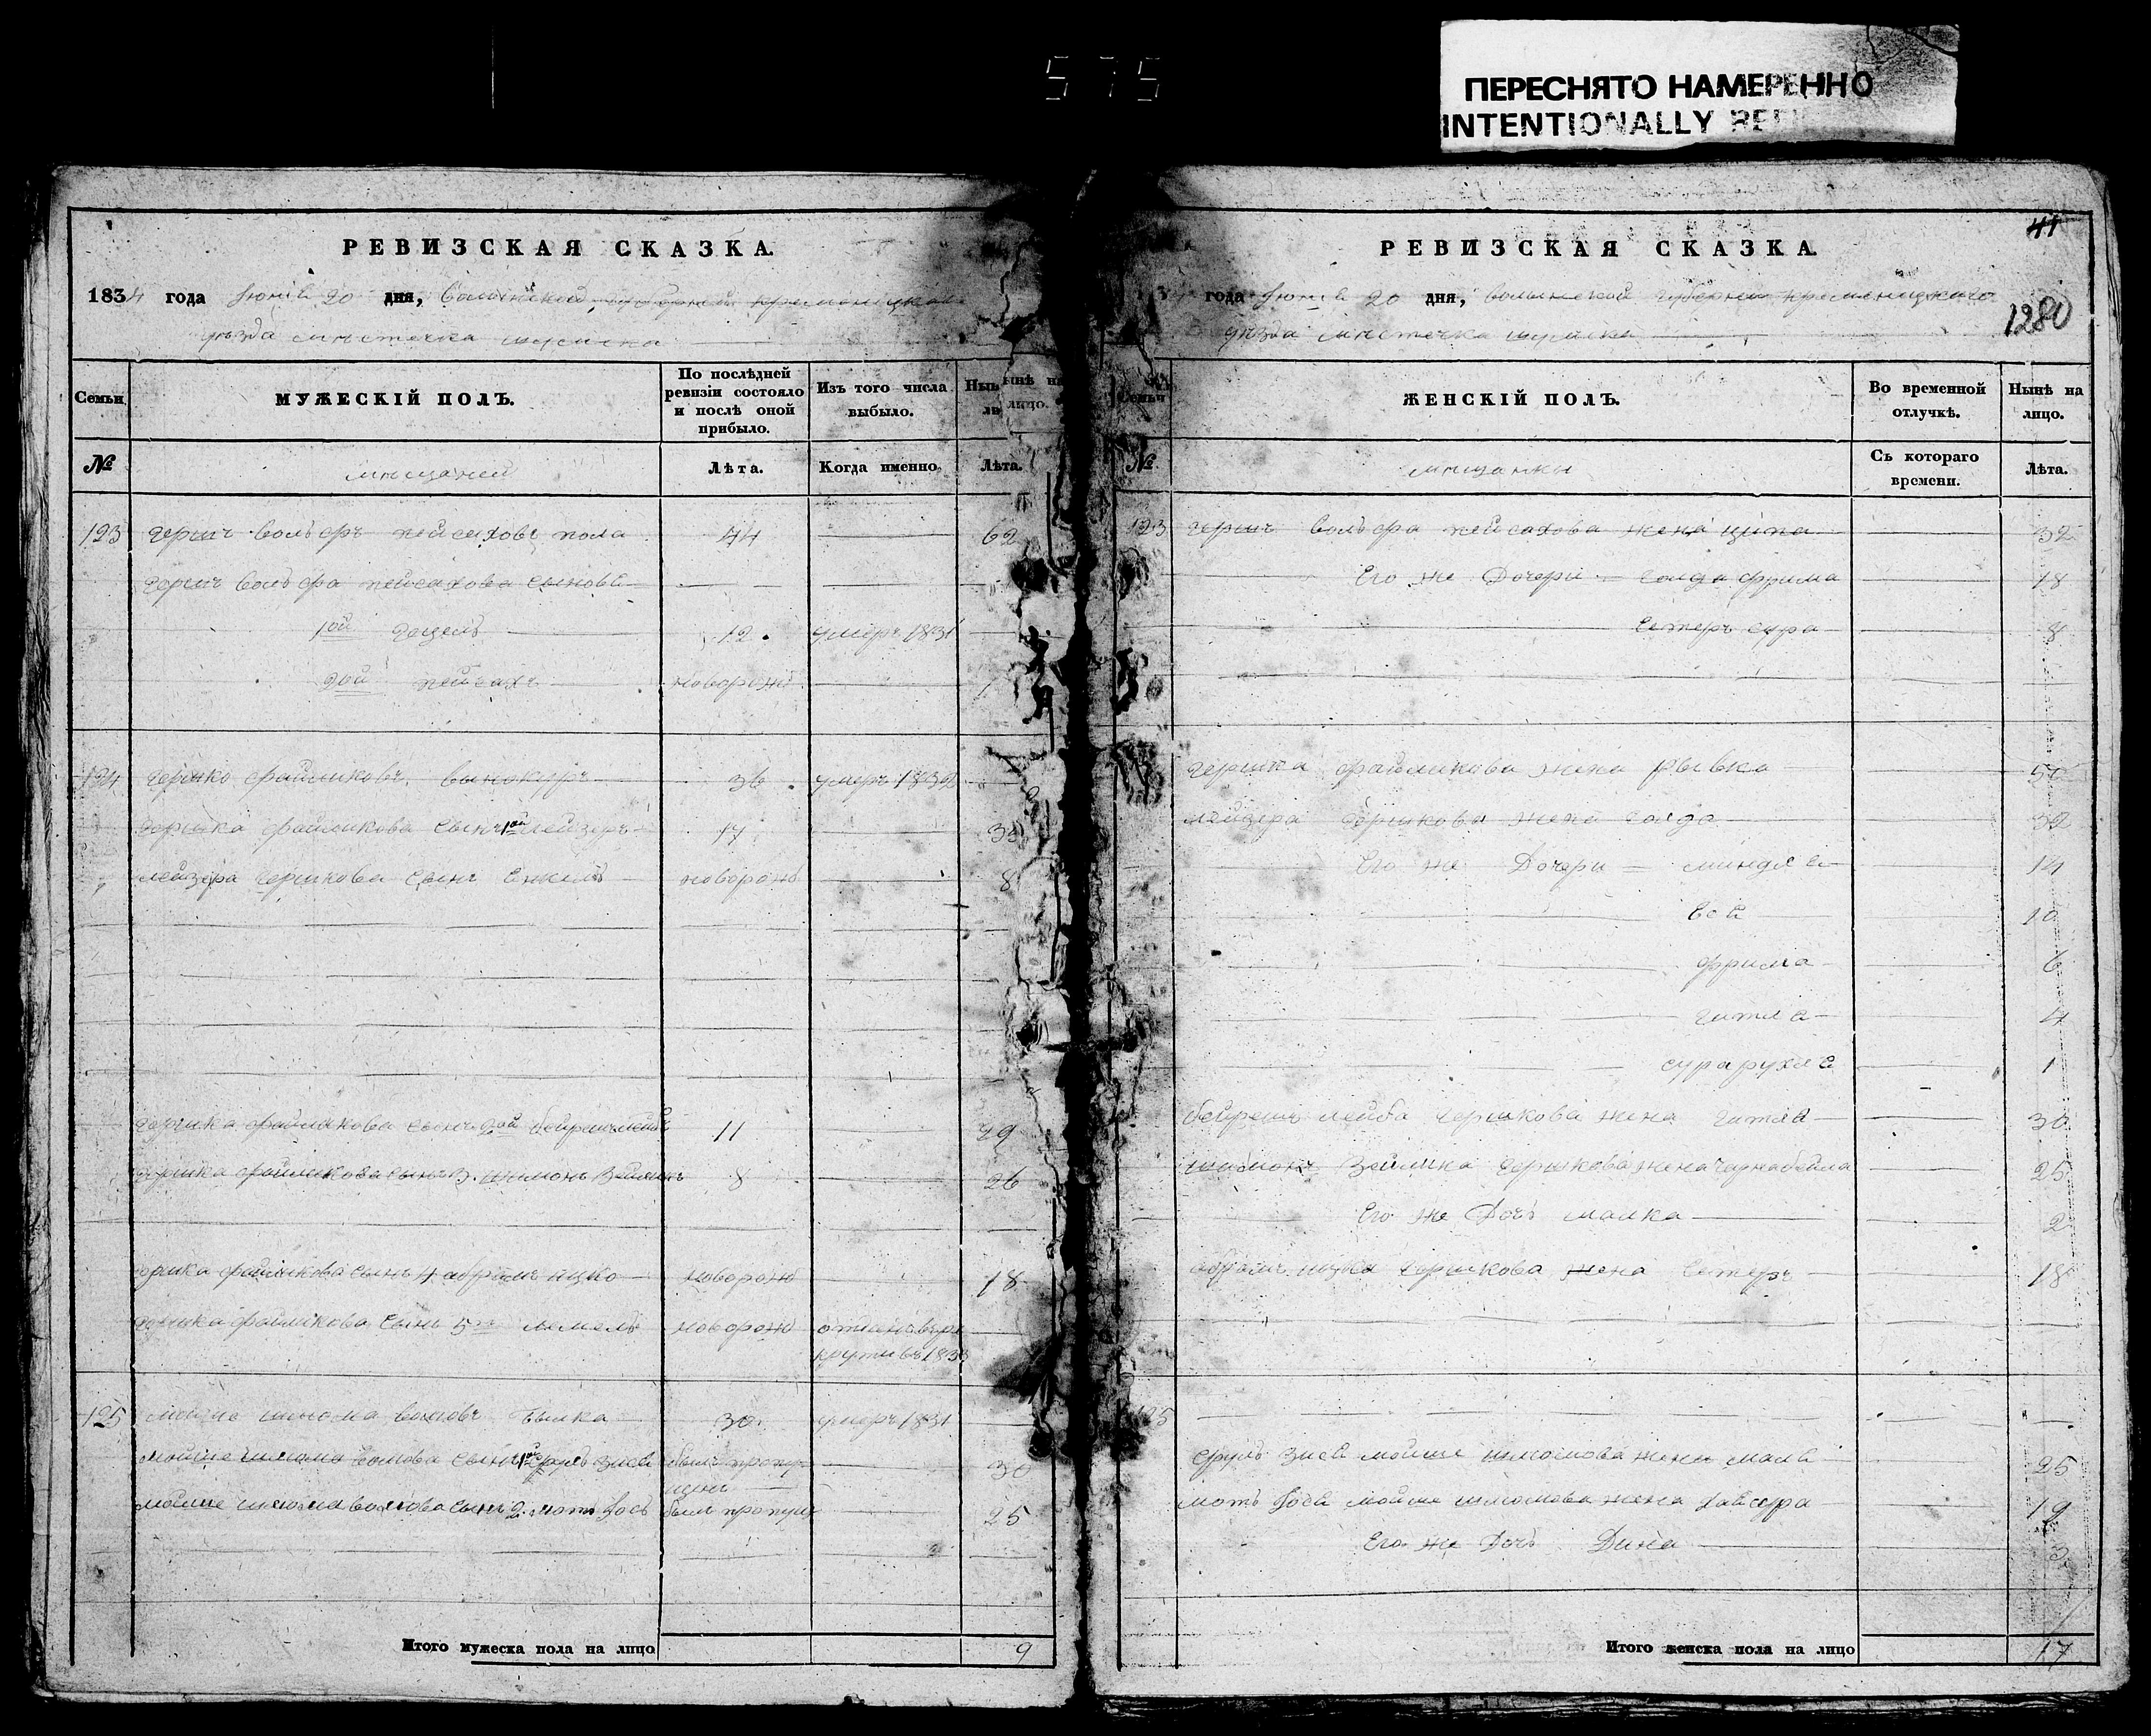 575
ПЕРЕСНЯТО НАМЕРЕННО
INTENTIONALLY
РЕВИЗСКАЯ СКАЗКА.
1834 года Іюня 20 дня, Волынской губерніи кременецкого
уѣзда мѣстечка шумска
Семьи
МУЖЕСКІЙ ПОЛЪ.
По послѣдней ревизіи состояло и послѣ оной прибыло.
Изъ того числа выбыло.
Нынѣ на лицо.
№
мѣщане
Лѣта.
Когда именно.
Лѣта.
123 Гершъ Вольфъ пейсаховъ пола 44 62
Гершъ Вольфа пейсахова сыновя
1ой 12 умеръ 1831
2ой пейсахъ новорожд
124 Гершко файликовъ винокуръ 36 умеръ 1832
Гершка файликова сынъ 1ой лейзеръ 17
лейзера Гершкова сынъ Енкель новорожд 8
Гершка файликова сынъ 2ой лейба 11 29
Гершка файликова сынъ 3. шимонъ Зейликъ 8 26
Гершка файликова сынъ 4 абрамъ ицко новорожд 18
Гершка файликова сынъ 5й новорожд отданъ въ рекруты въ 1833
125 мойше шлома 30 умеръ 1831
мойше шлома волкова сынъ 1ой сруль зися былъ пропущенъ 30
мойше шлома волкова сынъ 2. мотъ Іось былъ пропущ 25
Итого мужеска пола на лицо 9
41
РЕВИЗСКАЯ СКАЗКА.
года Іюня 20 дня, Волынской губерніи кременецкого
уѣзда мѣстечка шумска
1280
Семьи
ЖЕНСКІЙ ПОЛЪ.
Во временной отлучкѣ.
Нынѣ на лицо.
№
мѣщанки
Съ котораго времени.
Лѣта.
123 Гершъ Вольфа пейсахова жена ципа 32
Его же Дочери = Голда фрима 18
Естеръ сура 8
Гершка файликова жена рывка 50
лейзера Гершкова жена голда 32
Его же Дочери = миндля 14
бея 10
фрима 6
гитля 4
сура рухля 1
лейба Гершкова жена гитля 30
шимонъ Зейлика Гершкова жена чарна бейла 25
Его же Дочь малка 2
абрамъ ицка Гершкова жена Естеръ 18
125
сруль зися мойше шломова жена 25
мотъ Іося мойше шломова жена хая сура 19
Его же Дочь Дина 3
Итого женска пола на лицо 17